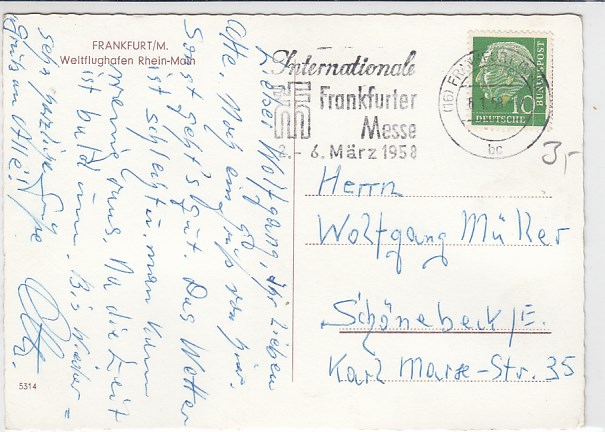 FRANKFURT/M.
Weltflughafen Rhein-Main
Lieber Wolfgang, Ihr Lieben
Alle. Noch ein Gruß von hier.
Sonst geht's gut. Das Wetter
ist schlecht u. man kann
wenig raus. Na die Zeit
ist bald um. Bis Wieder=
sehn herzliche Grüße
Gruß an Alle!
Internationale
Frankfurter
Messe
2.–6. März 1958
(16) FRANKFURT
bc
10
DEUTSCHE
BUNDESPOST
3,-
Herrn
Wolfgang Müller
Schönebeck/E.
Karl Marx-Str. 35
5314